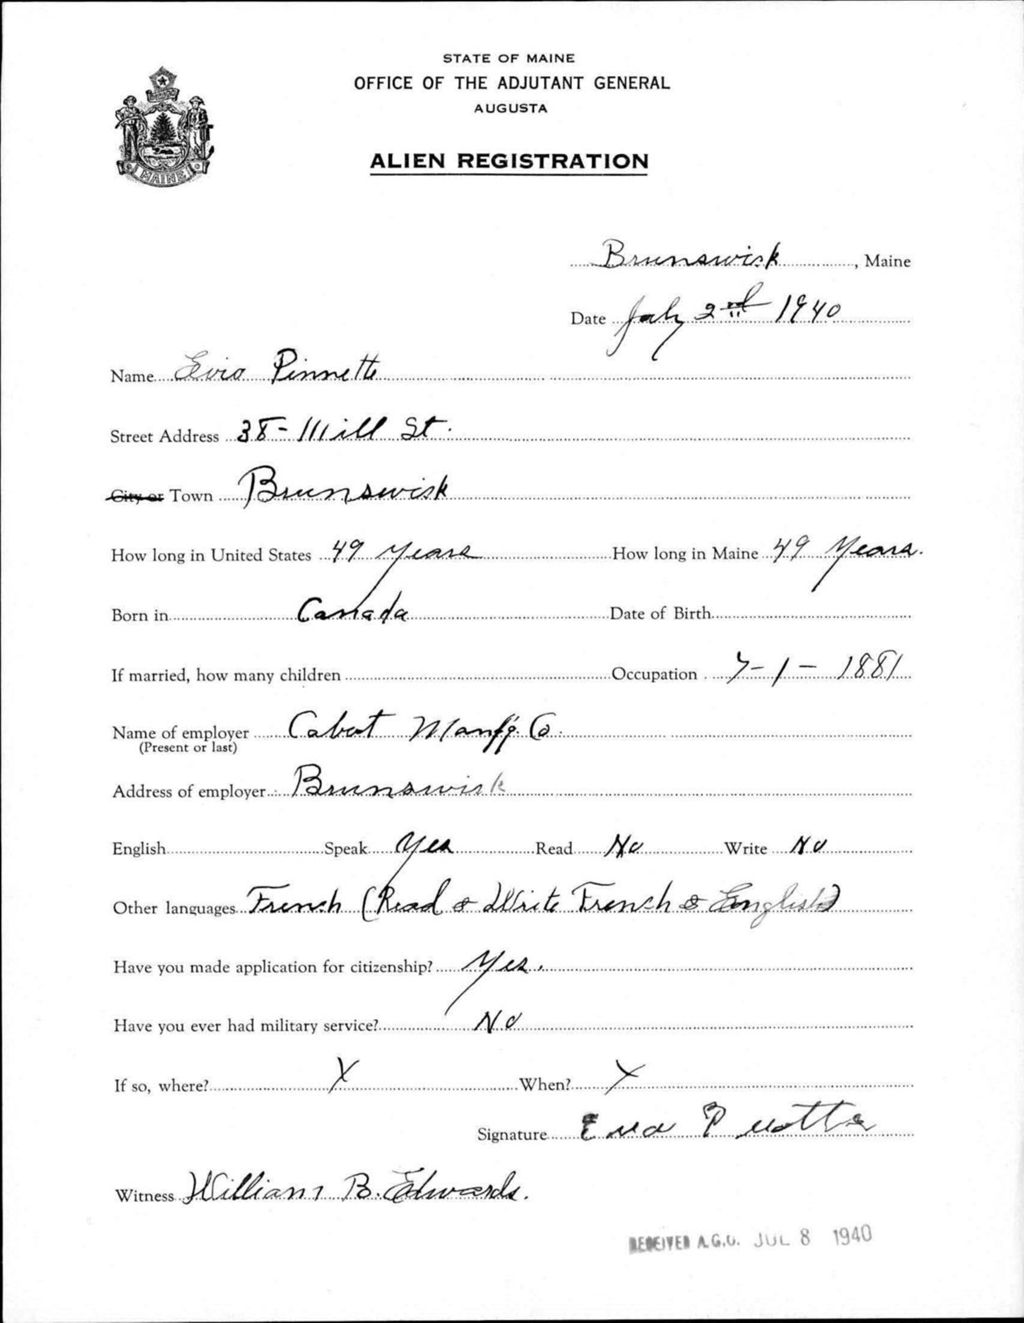 STATE OF MAINE
OFFICE OF THE ADJUTANT GENERAL
AUGUSTA
MAINE
ALIEN REGISTRATION
Brunswick, Maine
Date July 2nd 1940
Name Pinnette
Street Address 38 - Mill St.
City or Town Brunswick
How long in United States 49 years How long in Maine 49 Years.
Born in Canada Date of Birth
If married, how many children Occupation 7 - 1 - 1881
Name of employer Cabot Manfg. Co.
(Present or last)
Address of employer Brunswick
English Speak Yes Read No Write No
Other languages French (Read & Write French & English)
Have you made application for citizenship? Yes.
Have you ever had military service? No
If so, where? X When? X
Signature Eva
Witness William B. Edwards.
RECEIVED A.G.O. JUL 8 1940